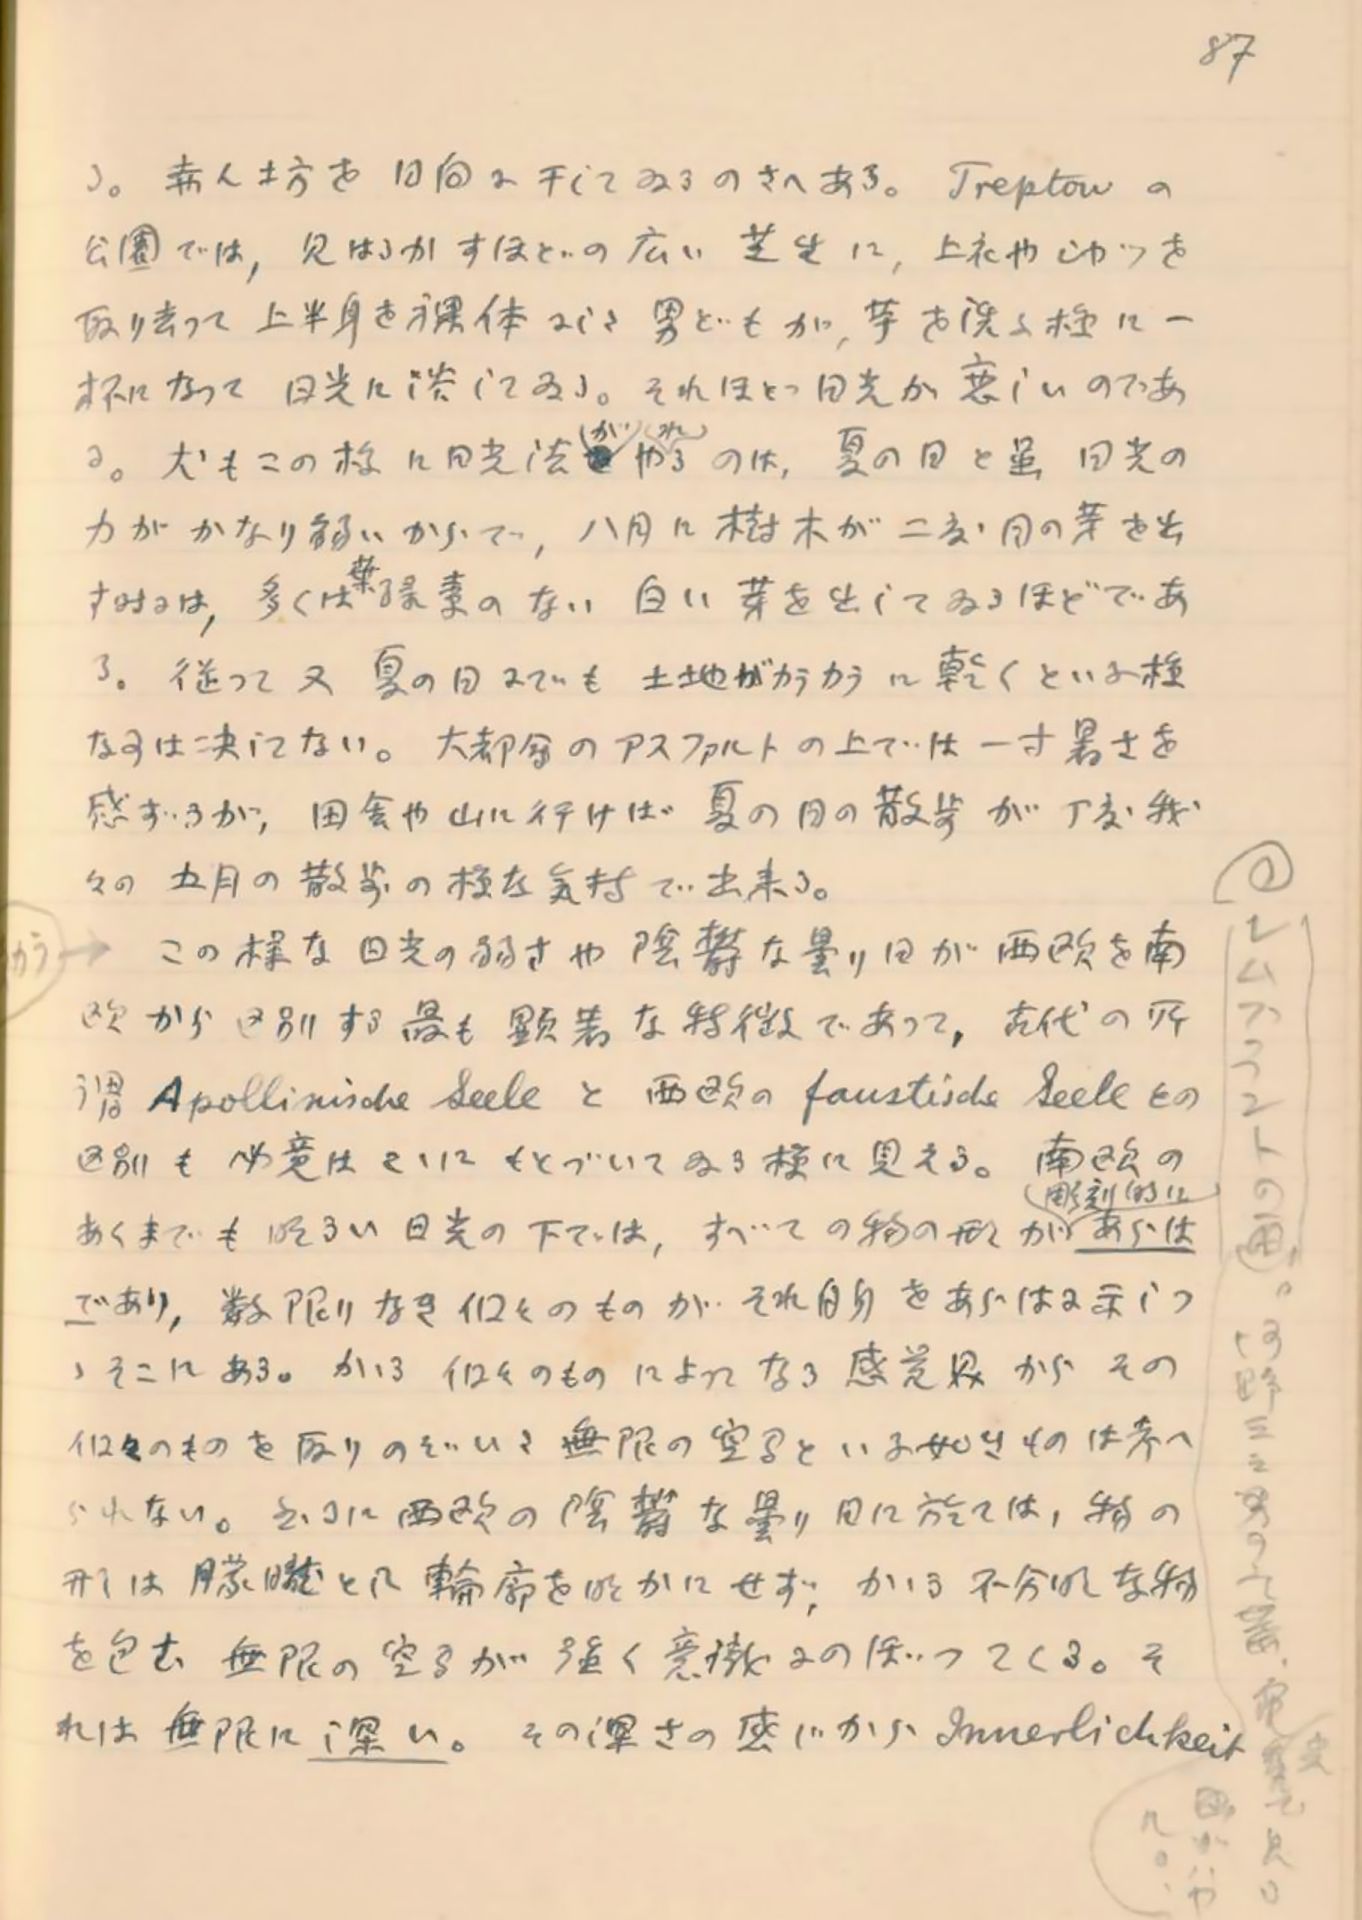 87
る。赤ん坊を日向に干してゐるのさへある。Treptow の
公園では, 見はるかすほどの広い芝生に, 上衣やシャツを
取り去って上半身を裸体にした男どもが, 芋を洗ふ様に一
杯になって日光に浴してゐる。それほど日光が恋しいのであ
る。尤もこの様に日光浴がやれるのは, 夏の日と虽日光の
力がかなり弱いからで, 八月に樹木が二度目の芽を出
す時には, 多くは葉緑素のない白い芽を出してゐるほどであ
る。従って又夏の日までも土地がカラカラに乾くといふ様
な事は決してない。大都会のアスファルトの上では一寸暑さを
感ずるが, 田舎や山に行けば夏の日の散歩が丁度我
々の五月の散歩の様な気持で出来る。
この様な日光の弱さや陰鬱な曇り日が西欧を南
欧から区別する最も顕著な特徴であって, 古代の所
謂 Apollinische Seele と西欧の faustische Seele との
区別も必竟はそこにもとづいてゐる様に見える。南欧の
あくまでも明るい日光の下では, すべての物の形が彫刻的にあらは
であり, 数限りなき個々のものがそれ自身をあらはに示しつ
ゝそこにある。かゝる個々のものによってなる感覚界からその
個々のものを取りのぞいた無限の空間といふ如きものは考へ
られない。然るに西欧の陰鬱な曇り日に於ては, 物の
形は朦朧として輪廓を明かにせず, かゝる不分明な物
を包む無限の空間が強く意識にのぼつてくる。そ
れは無限に深い。その深さの感じから Innerlichkeit
から→
レムブラントの画。